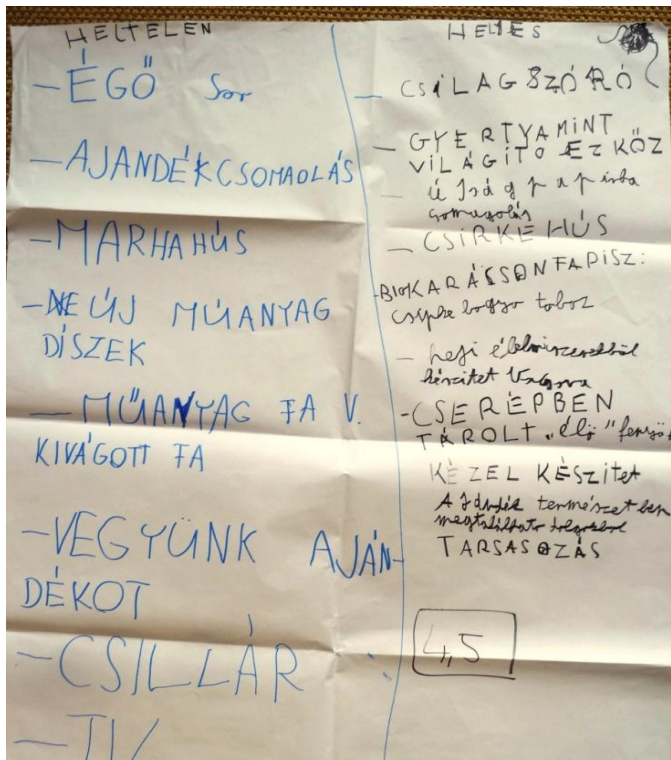 HELTELEN
— ÉGŐ Sor
— AJANDÉKCSOMAOLÁS
— MARHAHÚS
— NE ÚJ MŰANYAG
DÍSZEK
— MŰANYAG FA V.
KIVÁGOTT FA
— VEGYÜNK AJÁN-
DÉKOT
— CSILLÁR
— TV
HELYES
— CSILAGSZÓRÓ
— GYERTYAMINT
VILÁGÍTO EZKÖZ
— Újságpapirba
csomagolás
— CSIRKEHÚS
- BIOKARÁSSONFAPISZ:
csipke bogyo toboz
— heji élelmiszerekből
készitet Vagsora
- CSERÉPBEN
TÁROLT "élő" fenyő
KÉZEL KÉSZITet
AJándék természetben
megtalálhato
TARSASOZÁS
4,5